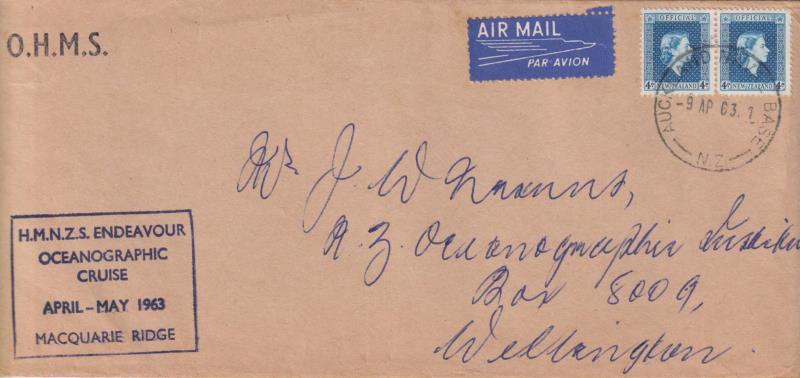 O.H.M.S.
AIR MAIL
PAR AVION
OFFICIAL OFFICIAL
4D NEW ZEALAND 4D NEW ZEALAND
AUCK BASE
-9 AP 63. 1
N.Z.
Mr J. W
N.Z. Oceanographic
Box 8009,
Wellington.
H.M.N.Z.S. ENDEAVOUR
OCEANOGRAPHIC
CRUISE
APRIL - MAY 1963
MACQUARIE RIDGE